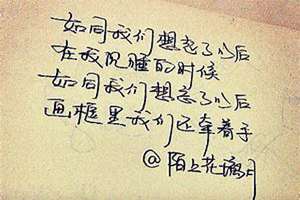 如同我们想忘了以后
在我沉睡的时候
如同我们想忘了以后
画框里我们还牵着手
@陌上花满月